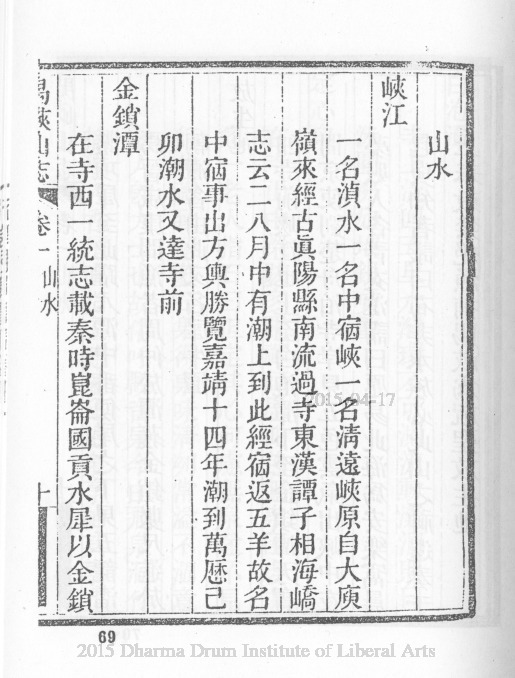 山水
峽江
一名湞水一名中宿峽一名清遠峽原自大庾
嶺來經古眞陽縣南流過寺東漢譚子相海嶠
志云二八月中有潮上到此經宿返五羊故名
中宿事出方輿勝覽嘉靖十四年潮到萬曆己
卯潮水又達寺前
金鎖潭
在寺西一統志載秦時崑崙國貢水犀以金鎖
禺峽山志 卷一 山水 十
2015-04-17
69
2015 Dharma Drum Institute of Liberal Arts